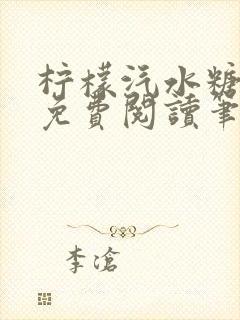 柠檬汽水糖
免費閱讀筆
李滄